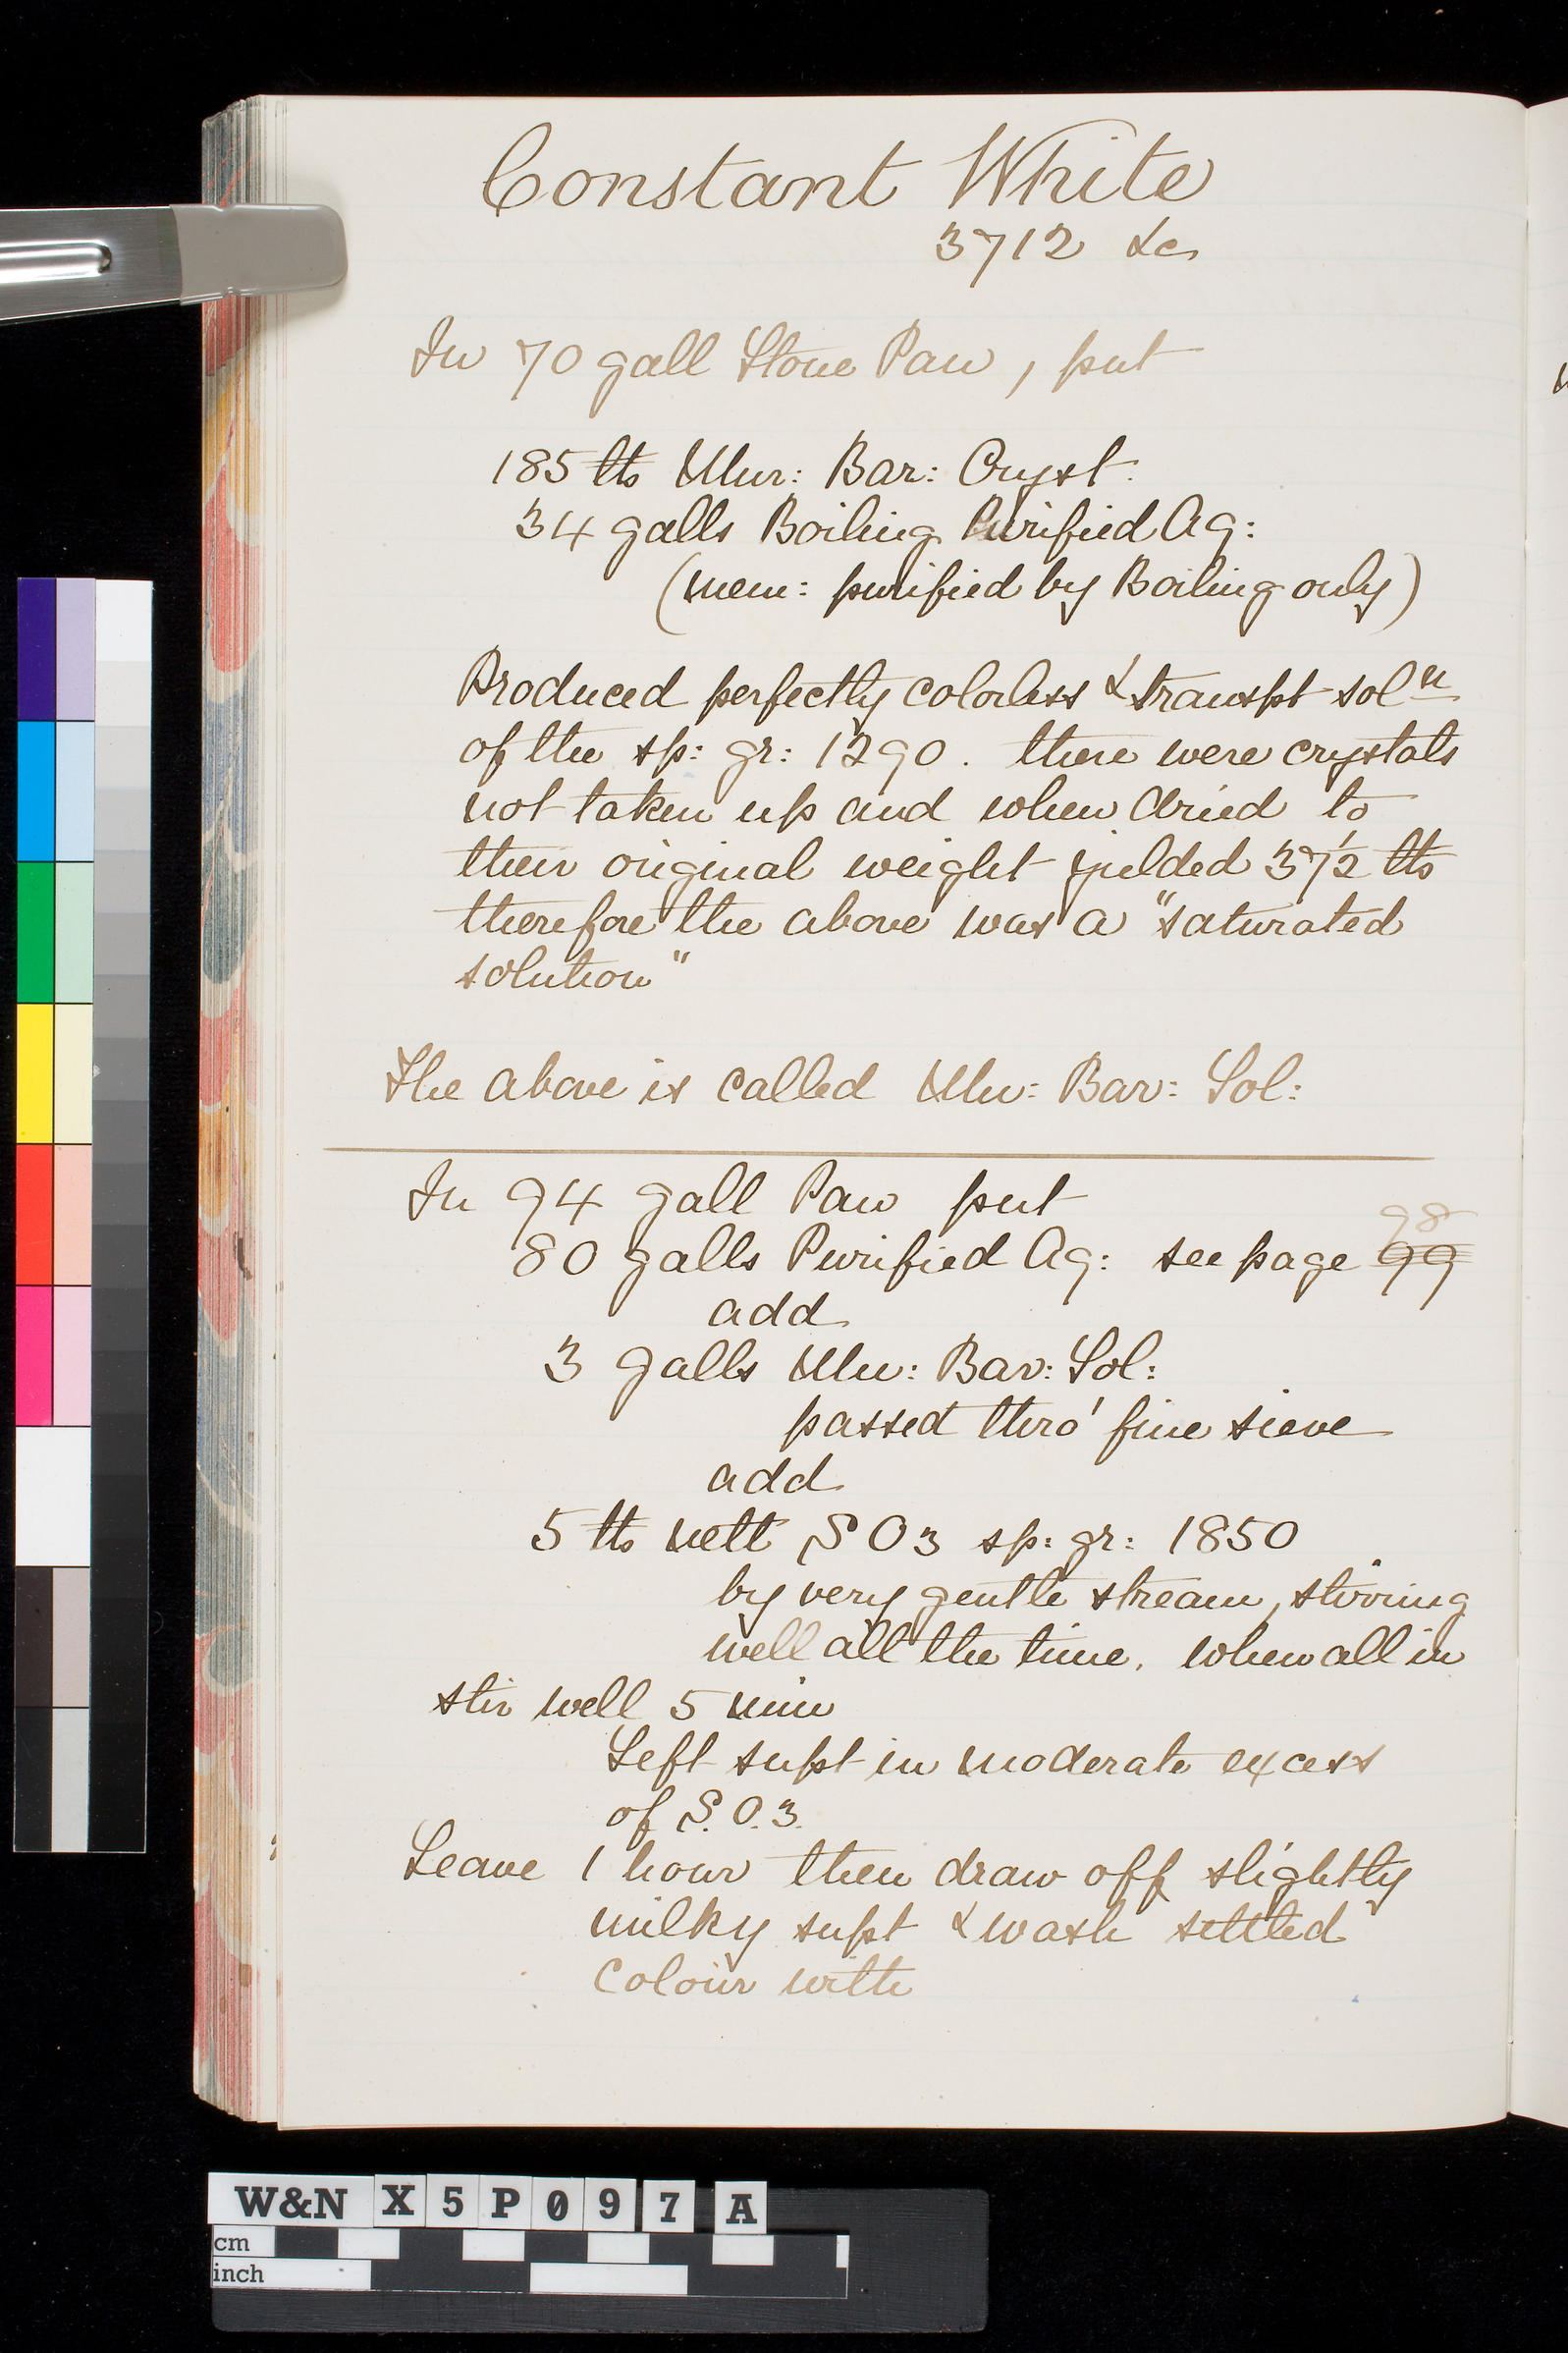 Constant White
3712 &c
In 70 gall Stone Pan, put
185 lbs Mur: Bar: Cryst:
34 galls Boiling Purified Aq:
(mem: purified by Boiling only)
Produced perfectly colorless & transpt solⁿ
of the sp: gr: 1290. there were crystals
not taken up and when dried to
their original weight yielded 37½ lbs
therefore the above was a "saturated
solution"
The above is called Mu: Bar: Sol:
In 94 gall Pan put
98
80 galls Purified Aq: see page 99
add
3 galls Mu: Bar: Sol:
passed thro' fine sieve
add
5 lbs nett SO3 sp: gr: 1850
by very gentle stream, stirring
well all the time. when all in
stir well 5 min
Left supt in moderate excess
of S.O.3.
Leave 1 hour then draw off slightly
milky supt & wash settled
colour with
W&N X5P097A
cm
inch